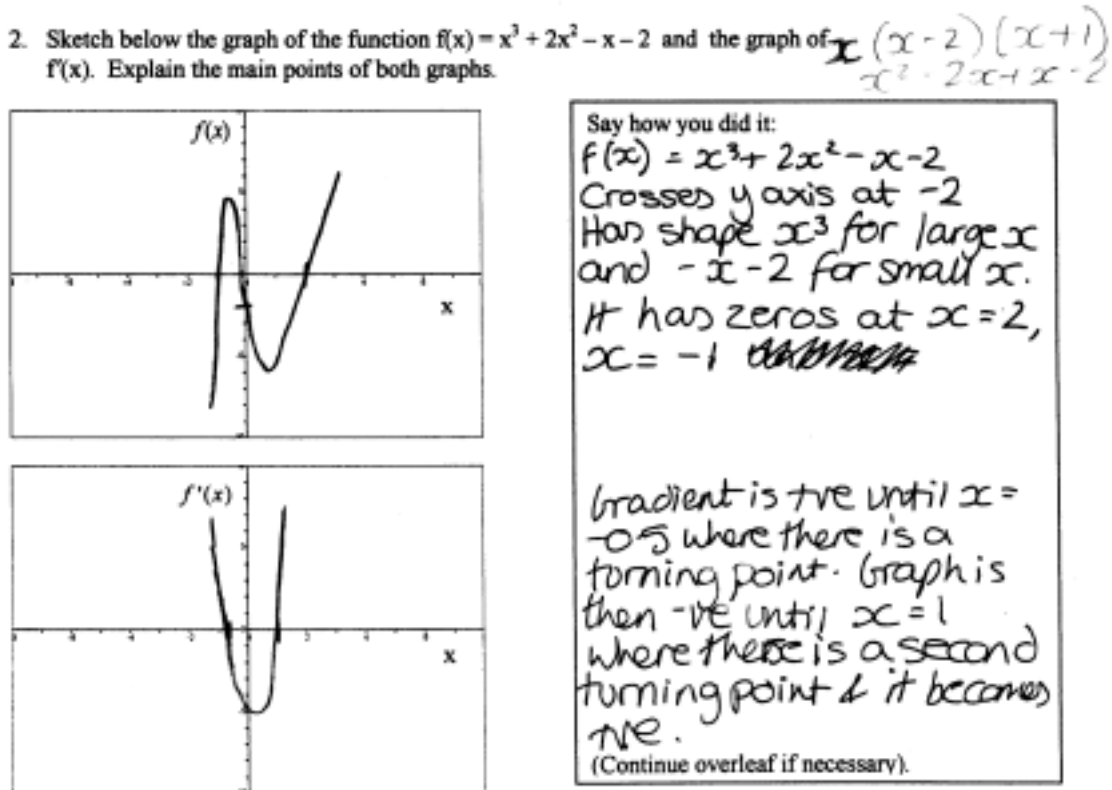 2. Sketch below the graph of the function f(x) = x³ + 2x² – x – 2 and the graph of
f'(x). Explain the main points of both graphs.
x (x-2)(x+1)
x² - 2x + x - 2
f(x)
x
f'(x)
x
Say how you did it:
f(x) = x³+ 2x²-x-2
Crosses y axis at -2
Has shape x³ for large x
and -x-2 for small x.
It has zeros at x=2,
x= -1
Gradient is +ve until x=
-0.5 where there is a
turning point. Graph is
then -ve until x=1
where there is a second
turning point & it becomes
+ve.
(Continue overleaf if necessary).